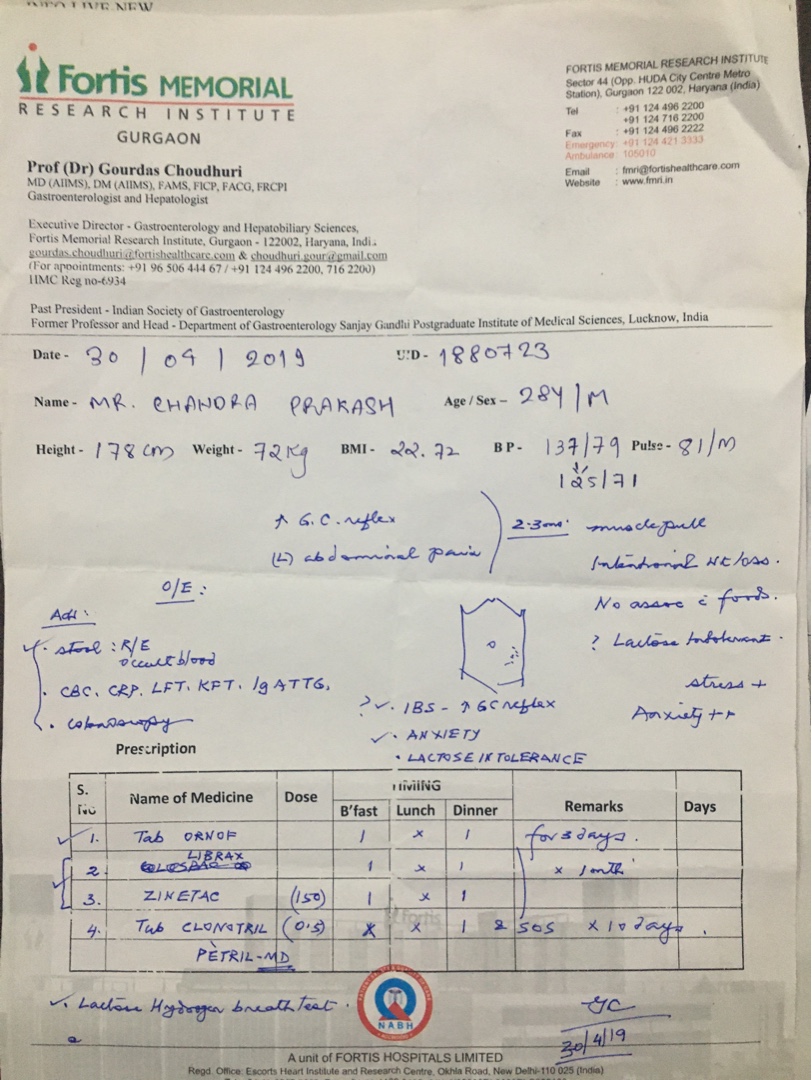 Fortis MEMORIAL
RESEARCH INSTITUTE
GURGAON
FORTIS MEMORIAL RESEARCH INSTITUTE
Sector 44 (Opp. HUDA City Centre Metro
Station), Gurgaon 122 002, Haryana (India)
Tel : +91 124 496 2200
+91 124 716 2200
Fax : +91 124 496 2222
Emergency: +91 124 421 3333
Ambulance: 105010
Email : fmri@fortishealthcare.com
Website : www.fmri.in
Prof (Dr) Gourdas Choudhuri
MD (AIIMS), DM (AIIMS), FAMS, FICP, FACG, FRCPI
Gastroenterologist and Hepatologist
Executive Director - Gastroenterology and Hepatobiliary Sciences,
Fortis Memorial Research Institute, Gurgaon - 122002, Haryana, Indi.
gourdas.choudhuri@fortishealthcare.com & choudhuri.gour@gmail.com
(For appointments: +91 96 506 444 67 / +91 124 496 2200, 716 2200)
HMC Reg no-6934
Past President - Indian Society of Gastroenterology
Former Professor and Head - Department of Gastroenterology Sanjay Gandhi Postgraduate Institute of Medical Sciences, Lucknow, India
Date - 30 / 04 / 2019 UID - 1880723
Name - MR. CHANDRA PRAKASH Age / Sex – 28Y/M
Height - 178 cm Weight - 72 Kg BMI - 22.72 BP - 137/79 Pulse - 81/M
125/71
↑ G.C. reflex 2-3 mo. muscle pull
(L) abdominal pain Intentional Wt loss.
O/E : No assoc c̄ foods.
Adv : ? Lactose Intolerant.
stool : R/E
occult blood
stress +
CBC, CRP, LFT, KFT, Ig A TTG, Anxiety ++
? IBS - ↑ GC reflex
colonoscopy
ANXIETY
LACTOSE INTOLERANCE
Prescription
S. No Name of Medicine Dose TIMING Remarks Days
B'fast Lunch Dinner
1. Tab ORNOF 1 x 1 for 3 days.
2. LIBRAX 1 x 1 x 1 mth
3. ZINETAC (150) 1 x 1
4. Tab CLONOTRIL (0.5) x x 1 & SOS x 10 days.
PETRIL-MD
Lactose Hydrogen breath test.
GC
30/4/19
NABH
A unit of FORTIS HOSPITALS LIMITED
Regd. Office: Escorts Heart Institute and Research Centre, Okhla Road, New Delhi-110 025 (India)